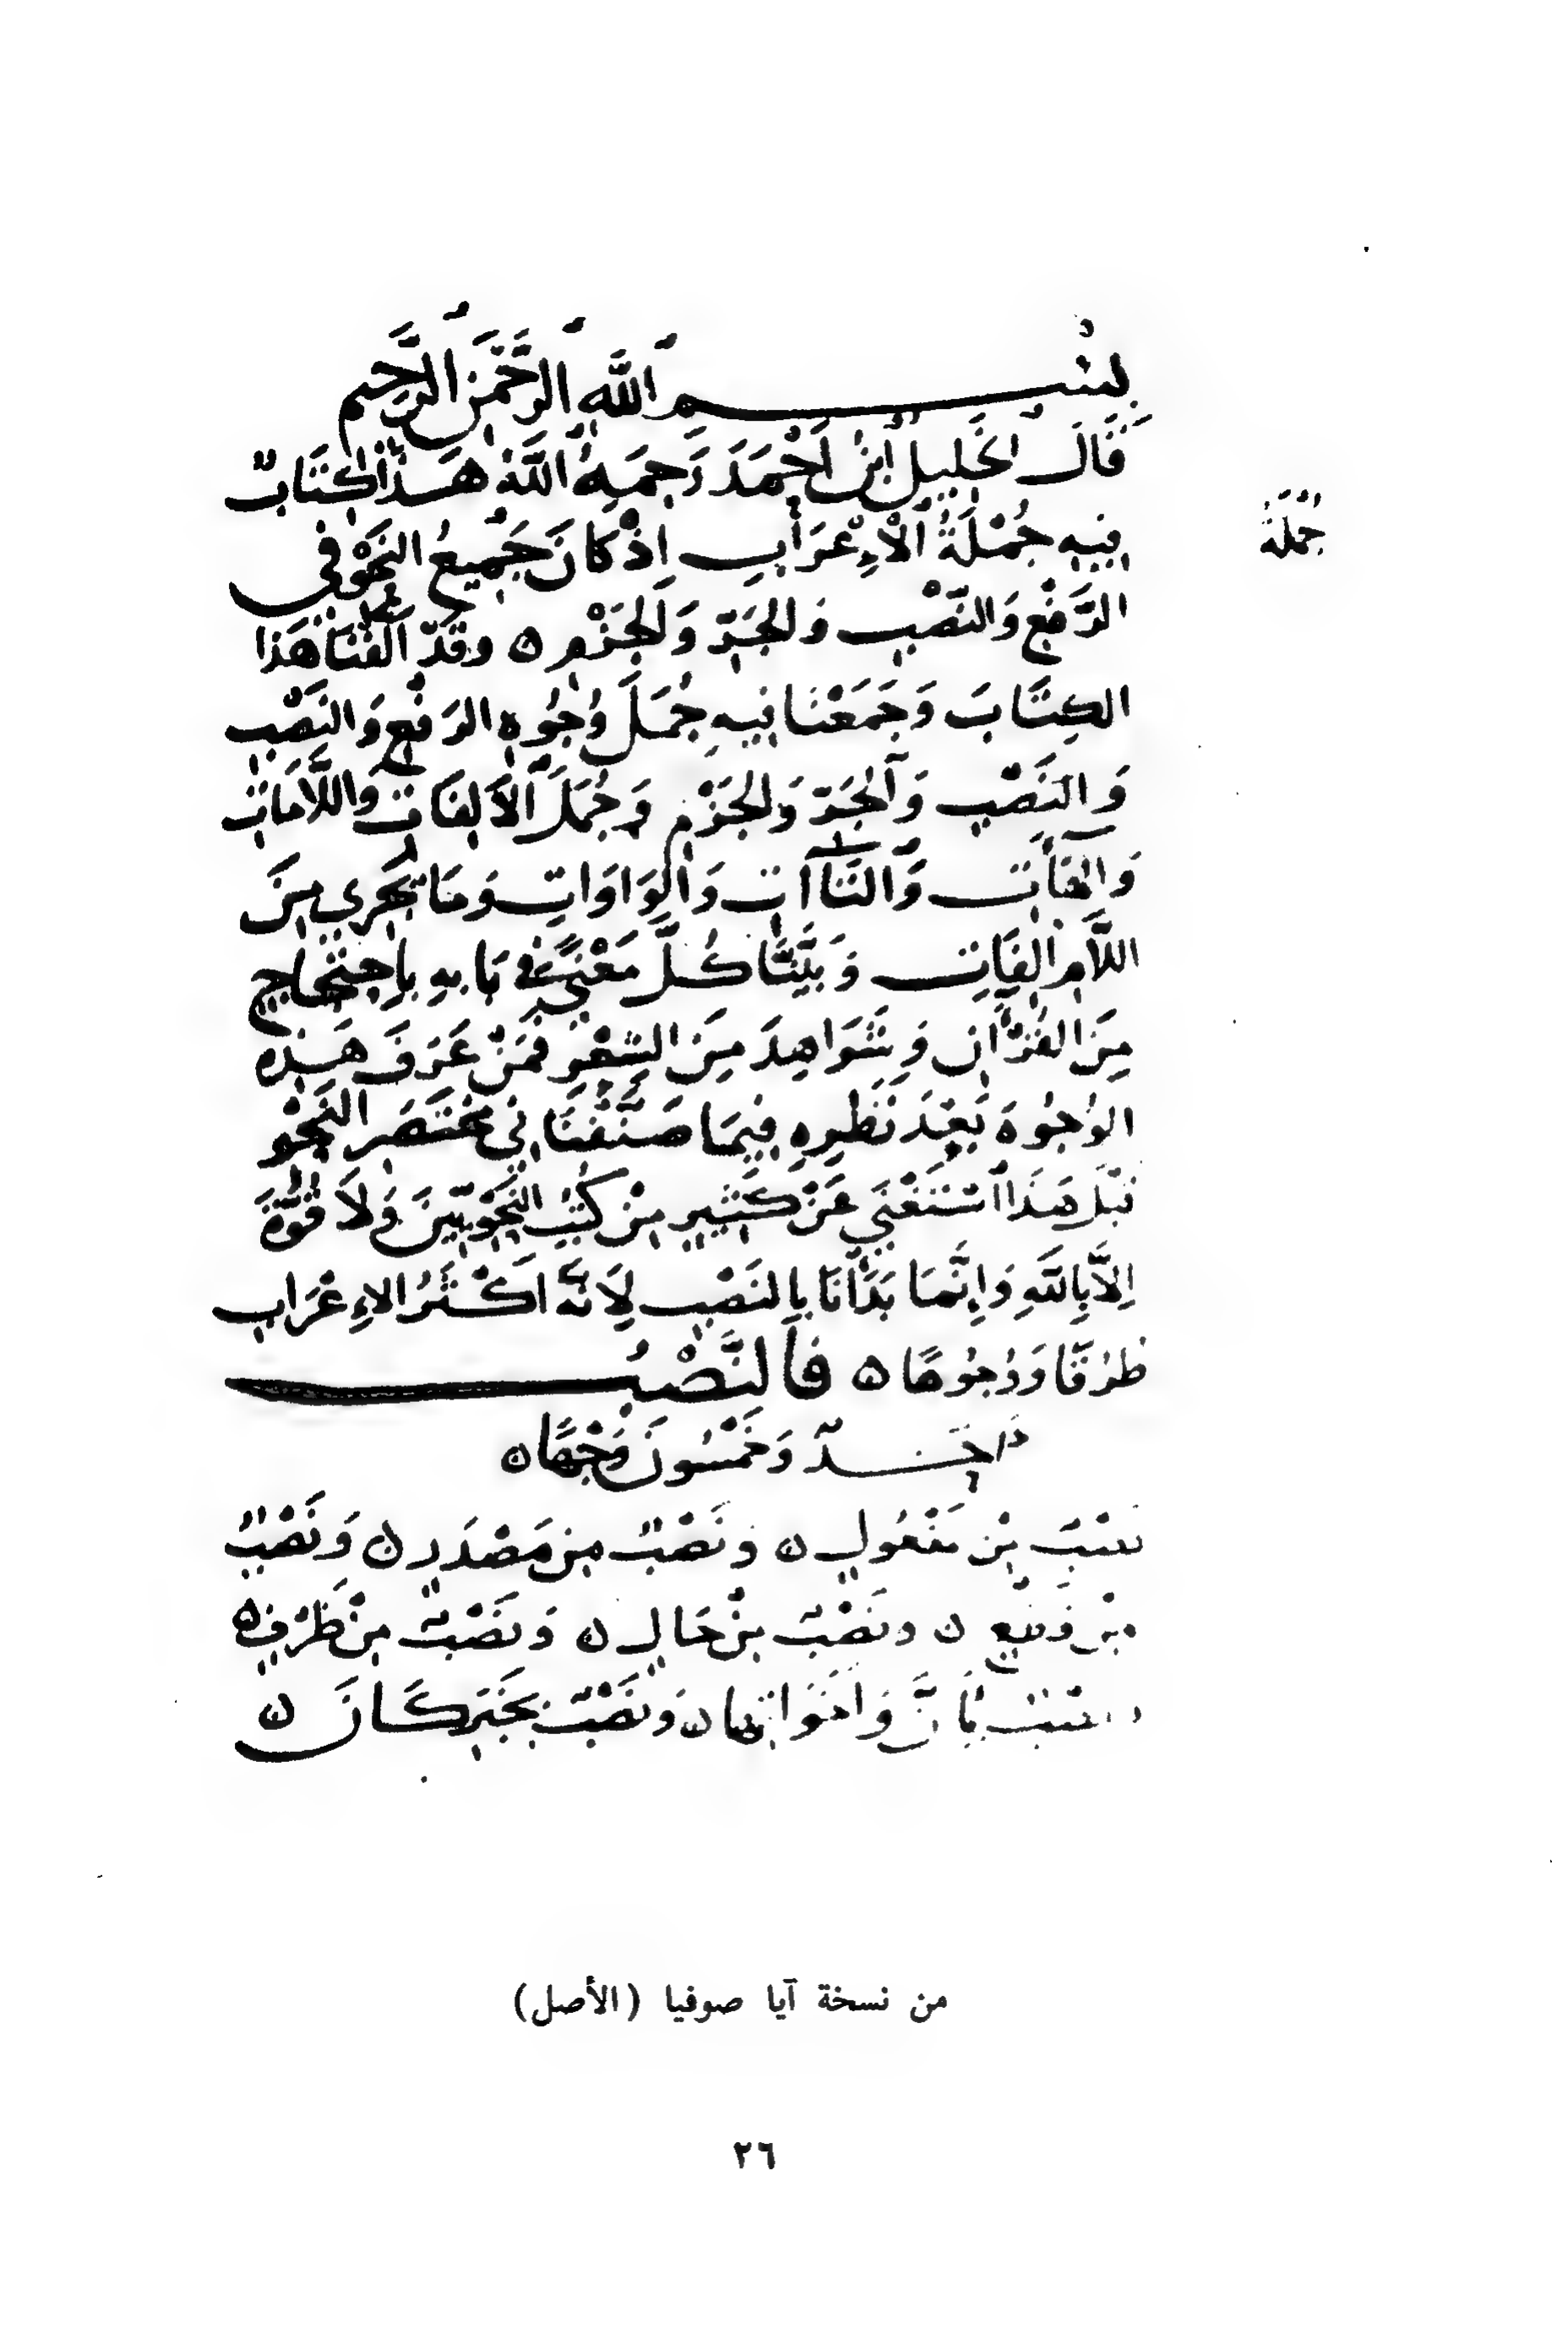 بِسْمِ اللَّهِ الرَّحْمَنِ الرَّحِيمِ
قَالَ الْخَلِيلُ ابْنُ أَحْمَدَ رَحِمَهُ اللَّهُ هَذَا كِتَابٌ
فِيهِ جُمْلَةُ الْإِعْرَابِ إِذْ كَانَ جَمِيعُ النَّحْوِ فِي
جُمْلَةُ
الرَّفْعِ وَالنَّصْبِ وَالْجَرِّ وَالْجَزْمِ ۵ وَقَدْ أَلَّفْنَا هَذَا
الكِتَابَ وَجَمَعْنَا فِيهِ جُمَلَ وُجُوهِ الرَفْعِ وَالنَصْبِ
وَالنَصْبِ وَالْجَرِّ وَالجَزْمِ وَجُمَلَ الْأَلِفَاتِ وَاللَّامَاتِ
وَالْهَاآتِ وَالتَّاآتِ وَالْوَاوَاتِ وَمَا يَجْرِي مِنَ
اللَّامِ الفَاتِ وَبَيَّنَّا كُلَّ مَعْنًى فِي بَابِهِ بِاحْتِجَاجٍ
مِنَ القُرْآنِ وَشَوَاهِدَ مِنَ الشِعْرِ فَمَنْ عَرَفَ هَذِهِ
الوُجُوهَ بَعْدَ نَظَرِهِ فِيمَا صَنَّفْنَا فِي مُخْتَصَرِ النَحْوِ
قَبْلَ هَذَا اسْتَغْنَي عَنْ كَثِيرٍ مِنْ كُتُبِ النَحْوِيِّينَ وَلَا قُوَّةَ
إِلَّا بِاللَّهِ وَإِنَّمَا بَدَأْنَا بِالنَصْبِ لِأَنَّهُ أَكْثَرُ الإِعْرَابِ
طُرُقًا وَوُجُوهًا ۵ فَالنَّصْبُ
أَحَدٌ وَخَمْسُونَ وَجْهًا ۵
نَصْبٌ مِنْ مَفْعُولٍ ۵ وَنَصْبٌ مِن مَصْدَرٍ ۵ وَنَصْبٌ
مِنْ قَطْعٍ ۵ وَنَصْبٌ مِنْ حَالٍ ۵ وَنَصْبٌ مِنْ ظَرْفٍ ۵
وَنَصْبٌ بِإِنَّ وَأَخَوَاتِهَا ۵ وَنَصْبٌ بِخَبَرِ كَانَ ۵
من نسخة آيا صوفيا (الأصل)
٢٦